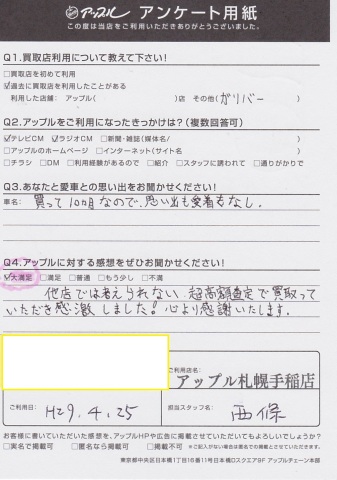 アップル アンケート用紙
この度は当店をご利用いただきありがとうございました。
Q1.買取店利用について教えて下さい!
□買取店を初めて利用
☑過去に買取店を利用したことがある
利用した店舗: アップル( )店 その他(ガリバー )
Q2.アップルをご利用になったきっかけは?(複数回答可)
☑テレビCM ☑ラジオCM □新聞・雑誌(媒体名/ )
□アップルのホームページ □インターネット(サイト名 )
□チラシ □DM □利用経験があるので □紹介 □スタッフに誘われて □通りがかりで
Q3.あなたと愛車との思い出をお聞かせください!
車名: 買って10ヶ月なので、思い出も愛着もなし.
Q4.アップルに対する感想をぜひお聞かせください!
☑大満足 □満足 □普通 □もう少し □不満
他店では考えられない、超高額査定で買取って
いただき感激しました!心より感謝いたします.
ご利用店名:
アップル札幌手稲店
ご利用日: H29.4.25 担当スタッフ名: 西條
お客様に書いていただいた感想を、アップルHPや広告に掲載させていただいてもよろしいでしょうか?
□実名で掲載可 □匿名なら掲載可 □掲載不可 ※ご記入がない場合は匿名での掲載とさせていただきます。
東京都中央区日本橋1丁目16番11号日本橋Dスクエア9F アップルチェーン本部